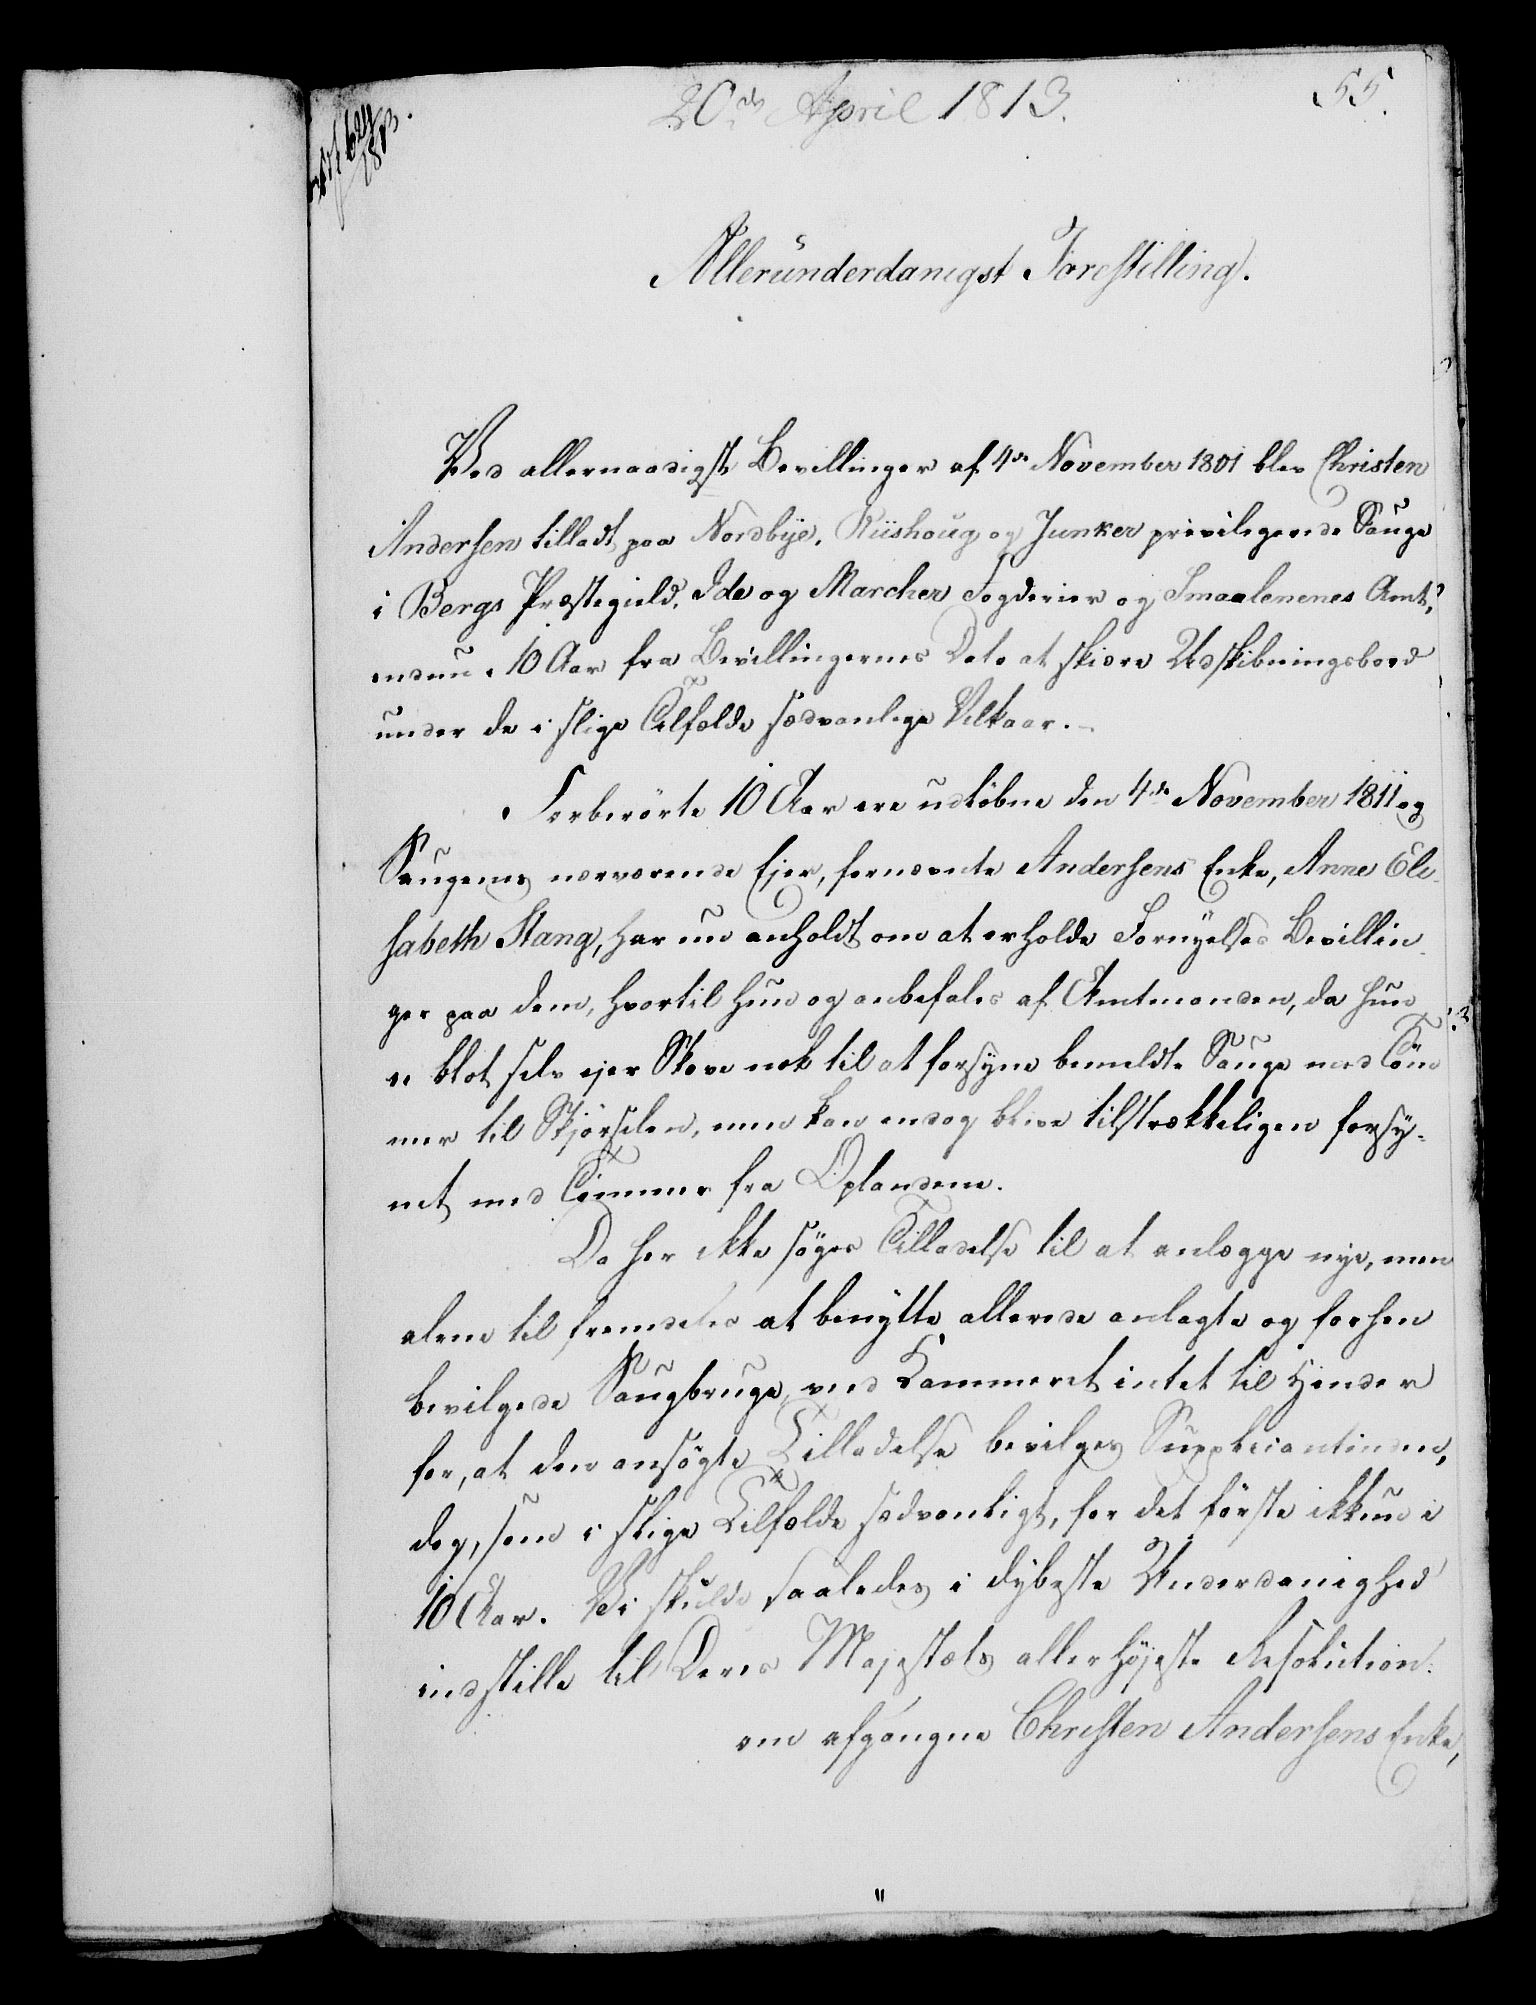 20de April 1813.
55.
1813.
Allerunderdanigst Forestilling.
Ved allernaadigst Bevillinger af 4de November 1801 blev Christen
Andersen tilladt paa Nordbÿe, Riishoug og Junker privilegerede Sauge
i Bergs Præstegield, Ide og Marcher Fogderier og Smaalenenes Amt,
endnu i 10 Aar fra Bevillingernes Dato at skiære Udskibningsbord
under de i slige Tilfælde sædvanlige Vilkaar.
Forberörte 10 Aar ere udlöbne den 4de November 1811 og
Saugenes nærværende Ejer, fornævnte Andersens Enke, Anne Eli-
sabeth Stang, har nu anholdt om at erholde Fornÿelses Bevillin-
ger paa dem, hvortil hun og anbefales af Amtmanden, da hun
ei blot selv ejer Skove nok til at forsyne bemeldte Sauge med Töm-
mer til Skjörselen, men kan endog blive tilstrækkeligen forsÿ-
net med Tömmer fra Oplandene.
Da her ikke söges Tilladelse til at anlægge nÿe, men
alene til fremdeles at benÿtte allerede anlagte og forhen
bevilgede Saugbruge, veed Kammeret intet til Hinder
for, at den ansögte Tilladelse bevilges Supplicantinden,
dog, som i slige Tilfælde sædvanligt, for det förste ikkun i
10 Aar. Vi skulde saaledes i dÿbeste Underdanighed
indstille til Deres Majestæts allerhöjeste Resolution:
om afgangne Christen Andersens Enke,